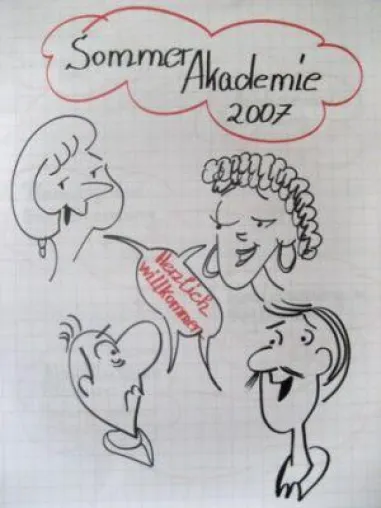 Sommer
Akademie
2007
Herzlich
willkommen